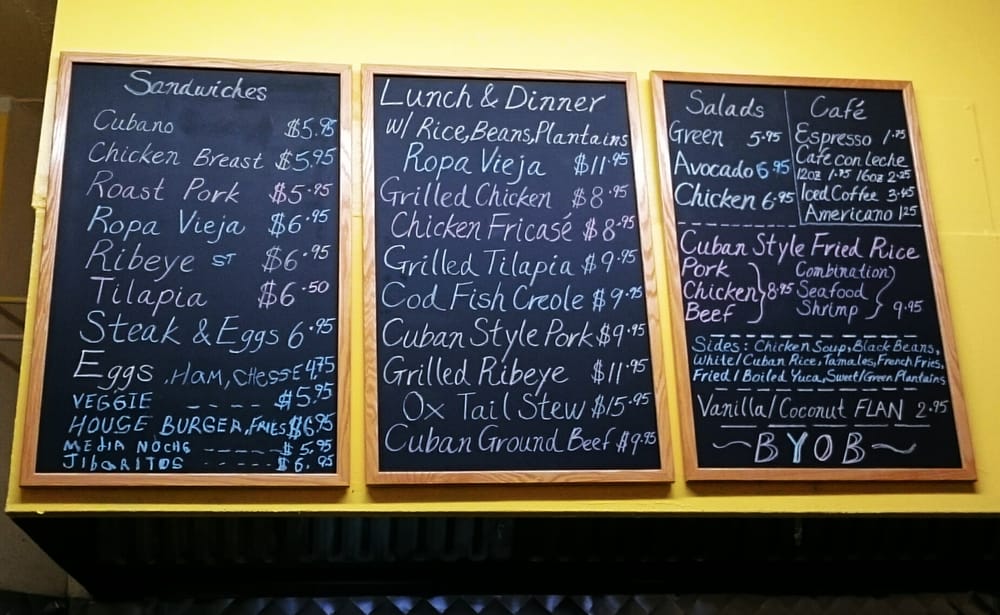 Sandwiches
Cubano $5.95
Chicken Breast $5.95
Roast Pork $5.95
Ropa Vieja $6.95
Ribeye ST $6.95
Tilapia $6.50
Steak & Eggs 6.95
Eggs, HAM, CHESSE 4.75
VEGGIE ---- $5.95
HOUSE BURGER, FRIES $6.95
MEDIA NOCHE ------ $5.95
JIBARITOS ----- $6.95
Lunch & Dinner
W/ Rice, Beans, Plantains
Ropa Vieja $11.95
Grilled Chicken $8.95
Chicken Fricasé $8.95
Grilled Tilapia $9.95
Cod Fish Creole $9.95
Cuban Style Pork $9.95
Grilled Ribeye $11.95
Ox Tail Stew $15.95
Cuban Ground Beef $9.95
Salads
Green 5.95
Avocado 6.95
Chicken 6.95
Café
Espresso 1.75
Café con leche
12oz 1.75 16oz 2.25
Iced Coffee 3.45
Americano 1.25
Cuban Style Fried Rice
Pork
Chicken 8.95
Beef
Combination
Seafood
Shrimp 9.95
Sides: Chicken Soup, Black Beans,
White/Cuban Rice, Tamales, French Fries,
Fried/Boiled Yuca, Sweet/Green Plantains
Vanilla/Coconut FLAN 2.95
~BYOB~